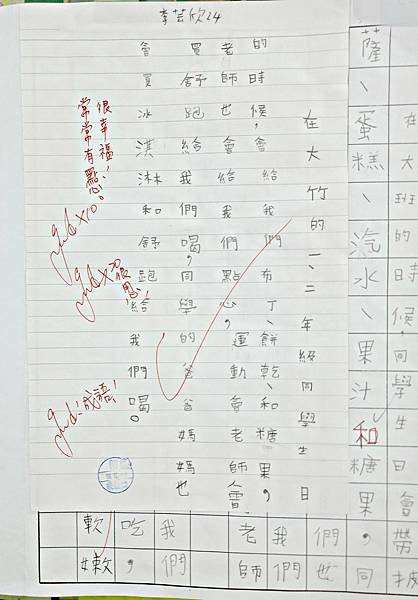 李芸欣24
在大竹的一、二年級同學生日
的時候，會給我們布丁、餅乾和糖果，
老師也會給我們點心，運動會老師會
買舒跑給我們喝，同學的爸爸媽媽也
會買冰淇淋和舒跑給我們喝。
很幸福！
常常有點心。
Good×10
Good×20
Good！成語！
在大班的時候，同學生日會帶披
薩、蛋糕、汽水、果汁和糖果，同
們也
我們
老師
我們
吃，
軟嫩